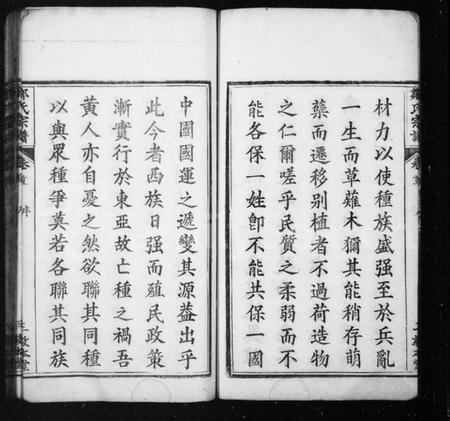 材力以使種族盛强至於兵亂
一生而草薙木獮其能稍存萌
蘗而遷移别植者不過荷造物
之仁爾嗟乎民質之柔弱而不
能各保一姓卽不能共保一國
鄒氏宗譜
卷首
中國國運之遞變其源益出乎
此今者西族日强而殖民政策
漸實行於東亞故亡種之禍吾
黃人亦自憂之然欲聯其同種
以與眾種爭莫若各聯其同族